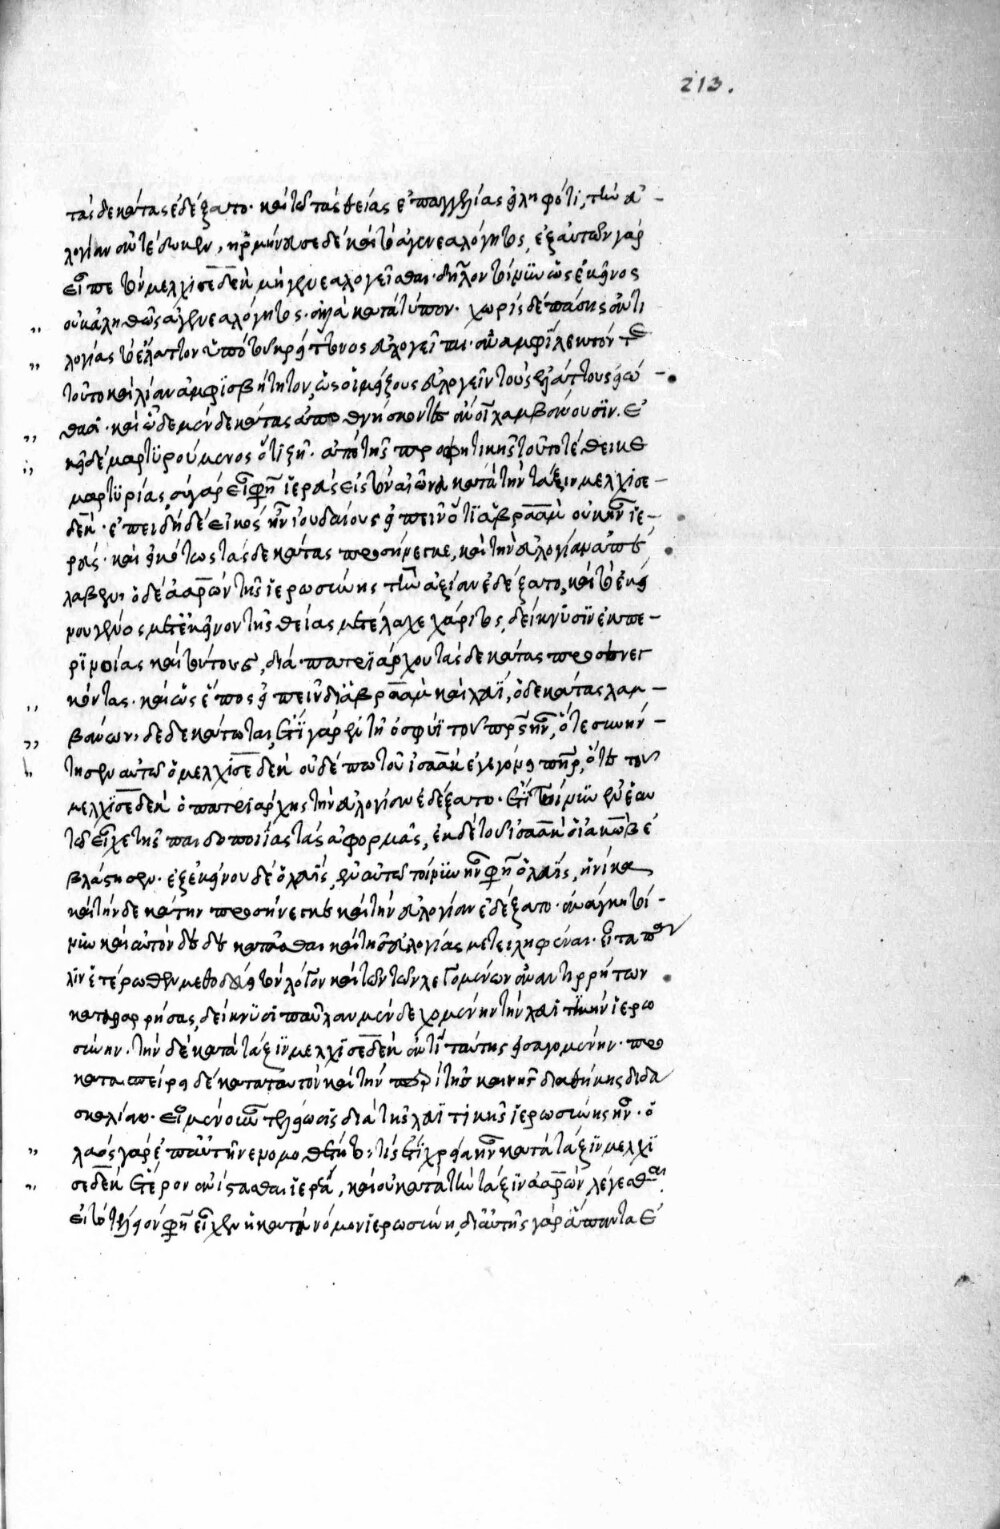 213.
τὰς δεκάτας ἐδέξατο· καὶ τῶ τὰς θείας ἐπαγγελίας εἰληφότι, τὴν εὐ-
λογίαν ἀντέδωκεν, ἡρμήνευσε δὲ καὶ τὸ ἀγενεαλόγητος, ἐξ αὐτῶν γάρ
εἶπε τὸν μελχισεδὲκ μὴ γενεαλογεῖσθαι· δῆλον τοίνυν ὡς ἐκεῖνος
οὐκ ἀληθῶς ἀγενεαλόγητος· ἀλλὰ κατὰ τύπον· χωρὶς δὲ πάσης ἀντι
λογίας τὸ ἔλαττον ὑπὸ τοῦ κρείττονος εὐλογεῖται· ἀναμφίλεκτόν τε
τοῦτο καὶ λίαν ἀναμφισβήτητον, ὡς οἱ μείζους εὐλογεῖν τοὺς ἐλάττους εἰώ-
θασι· καὶ ὧδε μὲν δεκάτας ἀποθνήσκοντες ἄνοι λαμβάνουσιν. ἐ
κεῖ δὲ μαρτυρούμενος ὅτι ζῆ· ἀπὸ τῆς προφητικῆς τοῦτο τέθεικε
μαρτυρίας, σὺ γάρ εἶ φη ἱερεὺς εἰς τὸν αἰῶνα κατὰ τὴν τάξιν μελχισε-
δέκ· ἐπειδὴ δὲ εἰκὸς ἦν ἰουδαίους εἰπεῖν ὅτι ἀβραὰμ οὐκ ἦν ἱε-
ρεύς· καὶ εἰκότως τὰς δεκάτας προσήνεγκε, καὶ τὴν εὐλογίαν ἀπέ
λαβεν, ὁ δὲ ἀαρὼν τῆς ἱερωσύνης τὴν ἀξίαν ἐδέξατο, καὶ τὸ ἐκεί
νου γένος μετ' ἐκεῖνον τῆς θείας μετέλαχε χάριτος, δείκνυσιν ἐκ πε-
ριουσίας καὶ τούτους, διὰ πατριάρχου τὰς δεκάτας προσενεγ
κόντας· καὶ ὡς ἔπος εἰπεῖν διὰ ἀβραὰμ καὶ λευὶ, ὁ δεκάτας λαμ-
βάνων, δεδεκάτωται, ἔτι γὰρ ἐν τῆ ὀσφύϊ τοῦ πρς ἦν, ὅτε συνήν-
τησεν αὐτῶ ὁ μελχισεδὲκ οὐδέπω τοῦ ἰσαὰκ ἐγεγόνει πηρ, ὅτε τοῦ
μελχισεδὲκ ὁ πατριάρχης τὴν εὐλογίαν ἐδέξατο· ἔτι τοίνυν ἐν ἑαυ
τῶ εἶχε τῆς παιδοποιίας τὰς ἀφορμάς, ἐκ δὲ τοῦ ἰσαὰκ ὁ ἰακὼβ ἐ
βλάστησεν· ἐξ ἐκείνου δὲ ὁ λευίς, ἐν αὐτῶ τοίνυν ἦν φη ὁ λευΐς, ἡνίκα
καὶ τὴν δεκάτην προσήνεγκε καὶ τὴν εὐλογίαν ἐδέξατο· ἀνάγκη τοί-
νυν καὶ αὐτὸν δεδεκατῶσθαι καὶ τῆς εὐλογίας μετειληφέναι· εἶτα πά
λιν ἑτέρωθεν μεθοδεύει τὸν λόγον καὶ τῶν τῶν λεγομένων ἀναντιρρήτων
καταθαρρήσας, δείκνυσι παῦλαν μὲν δεχομένην τὴν λευϊτικὴν ἱερω
σύνην· τὴν δὲ κατὰ τάξιν μελχισεδὲκ ἀντὶ ταύτης εἰσαγομένην· προ
κατασπείρει δὲ κατὰ ταυτὸν καὶ τὴν περὶ τῆς καινῆς διαθήκης διδα
σκαλίαν· εἰ μὲν οὖν τελείωσις διὰ τῆς λευϊτικῆς ἱερωσύνης ἦν· ὁ
λαὸς γὰρ ἐπ' αὐτῆ νενομοθέτητο· τίς ἔτι χρεία ἦν κατὰ τάξιν μελχι
σεδὲκ ἕτερον ἀνίστασθαι ἱερέα, καὶ οὐ κατὰ τὴν τάξιν ἀαρὼν λέγεσθαι,
εἰ τὸ τέλειον φη εἶχεν ἡ κατὰ νόμον ἱερωσύνη, δι' αὐτῆς γὰρ ἅπαντα ἐ